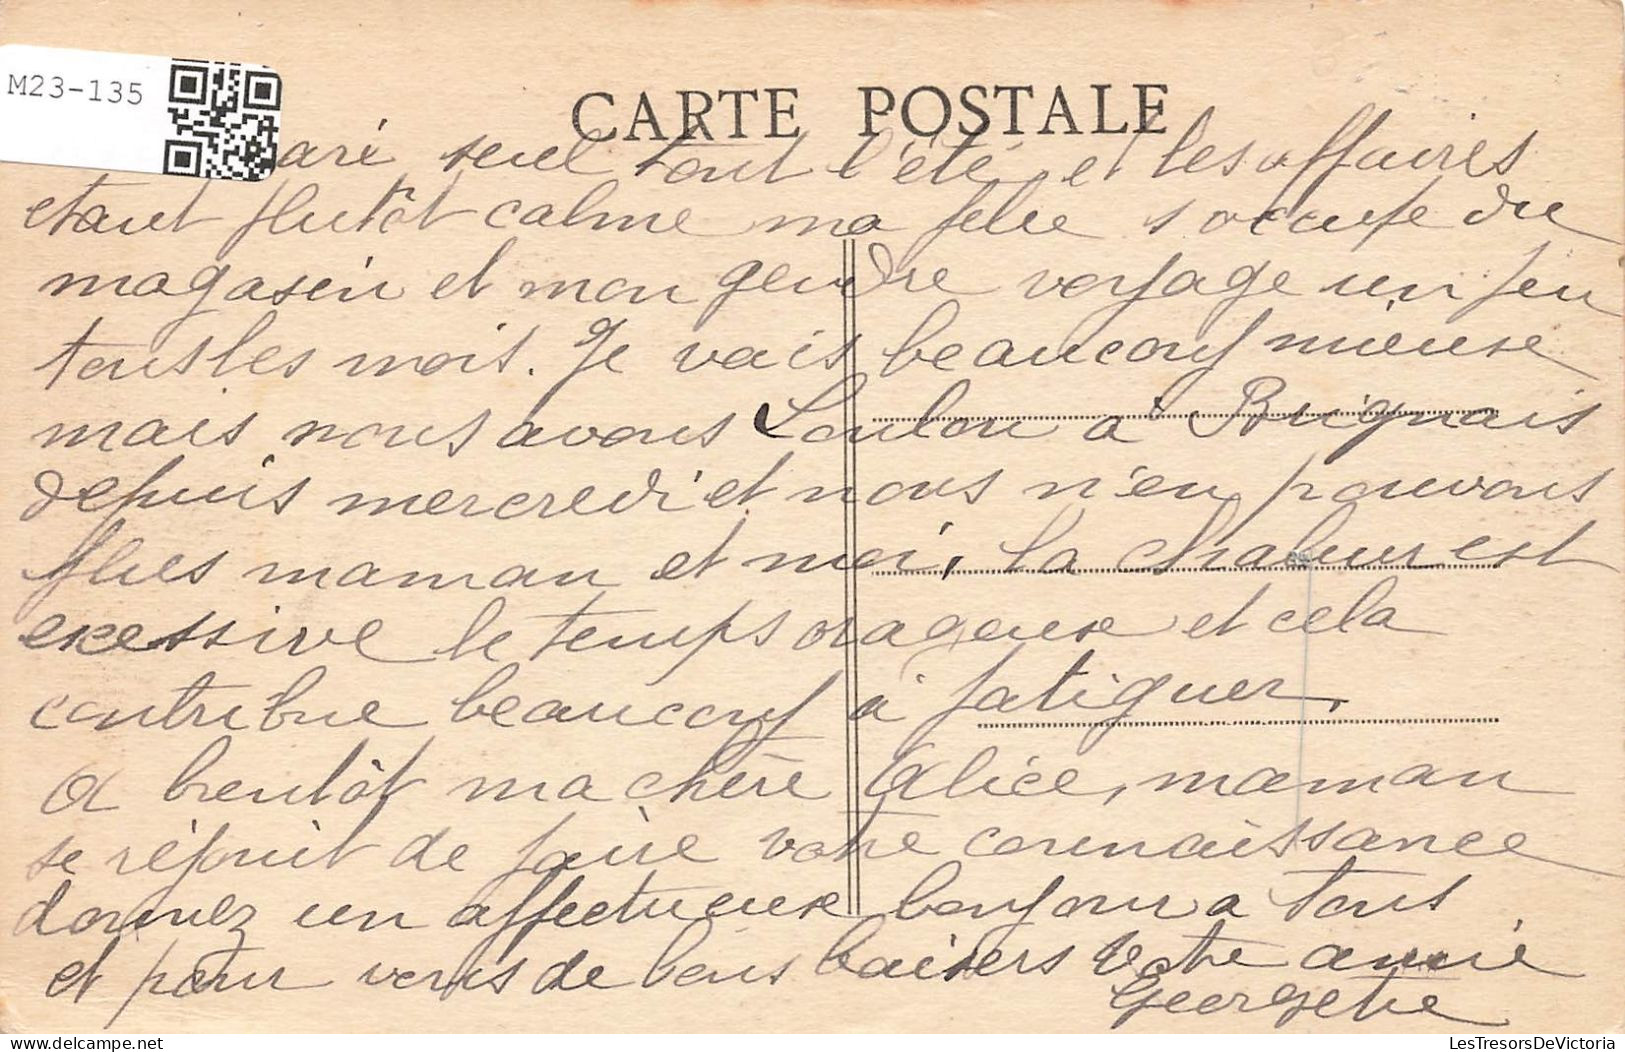 M23-135
CARTE POSTALE
mari seul tout l'été et les affaires
etant plutôt calme ma fille s'occupe du
magasin et mon gendre voyage un peu
tous les mois. Je vais beaucoup mieuxe
mais nous avons Loulou à Brignais
depuis mercredi et nous n'en pouvons
plus maman et moi, la chaleur est
excessive le temps orageuse et cela
contribue beaucoup à fatiguer.
A bientôt ma chère Alice, maman
se réjouit de faire votre connaissance
donnez un affectueuse bonjour a tous
et pour vous de bons baisers Votre amie
Georgette
LesTresorsDeVictoria - delcampe.net